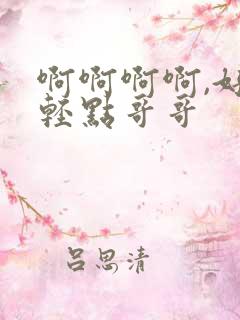 啊啊啊啊,好
輕點哥哥
吕思清